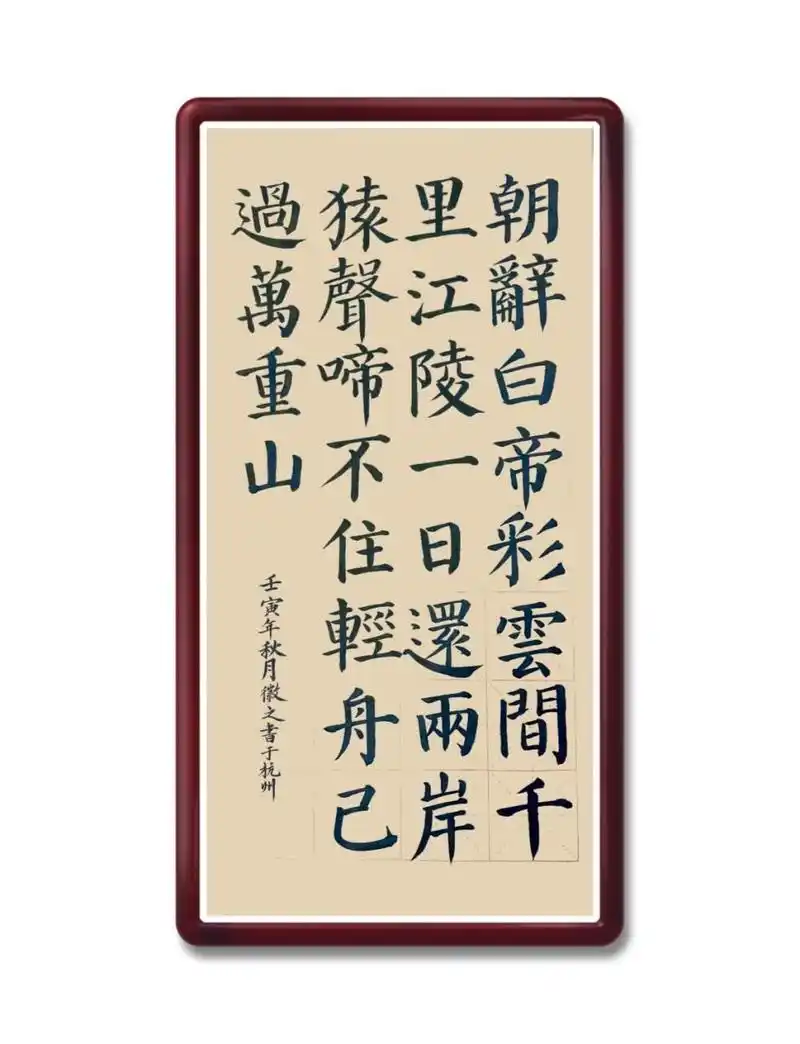 朝辭白帝彩雲間千
里江陵一日還兩岸
猿聲啼不住輕舟已
過萬重山
壬寅年秋月徽之書于杭州